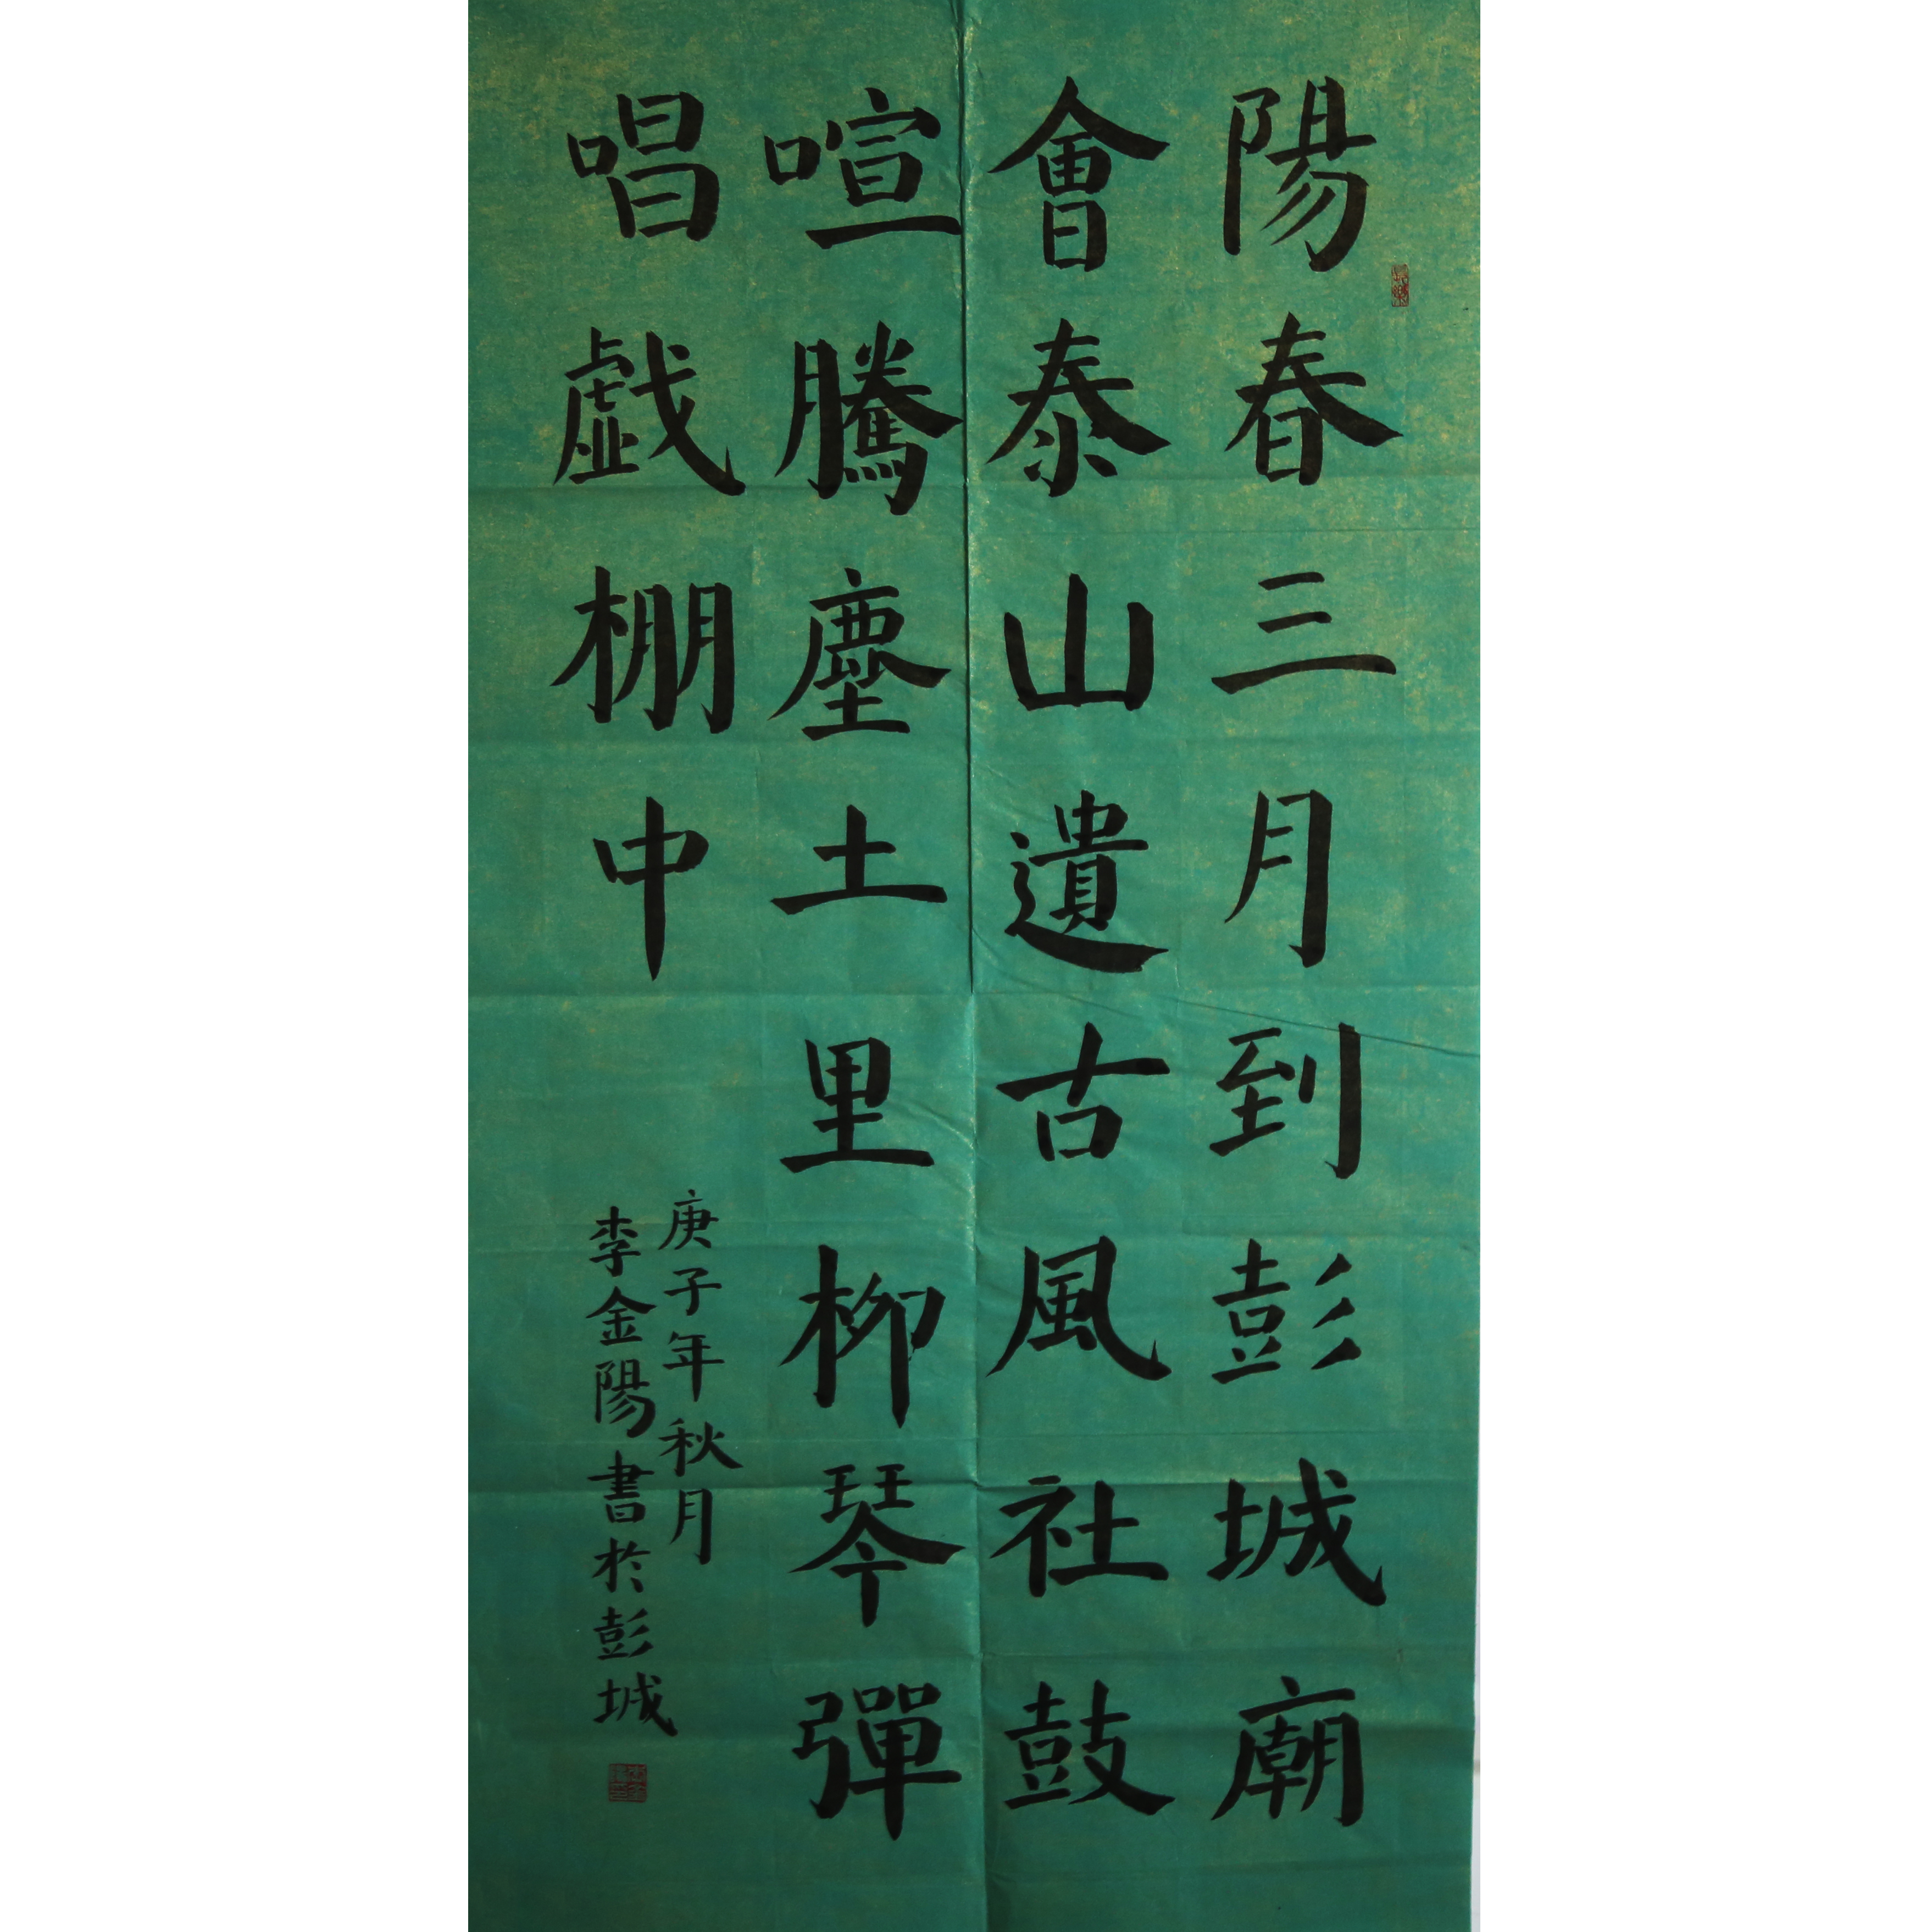 陽春三月到彭城廟
會泰山遺古風社鼓
喧騰塵土里柳琴彈
唱戯棚中
庚子年秋月
李金陽書於彭城